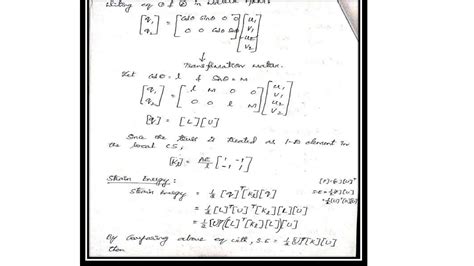 Writing eq ① & ② in Matrix form
[q₁ q₂] = [cosθ sinθ 0 0; 0 0 cosθ sinθ] [u₁ v₁ u₂ v₂]
↓
Transformation matrix.
Let cosθ = l & sinθ = M
[q₁ q₂] = [l M 0 0; 0 0 l M] [u₁ v₁ u₂ v₂]
[q] = [L] [U]
Since the truss is treated as 1-D element in
the local CS,
[K] = AE/l [1 -1; -1 1]
Strain Energy:
Strain Energy = ½ [q]ᵀ [K] [q]
= ½ [L]ᵀ [U]ᵀ [K] [L] [U]
= ½ [U]ᵀ [L]ᵀ [K] [L] [U]
By Comparing above eq with, S.E = ½ [U]ᵀ [K] [U]
then